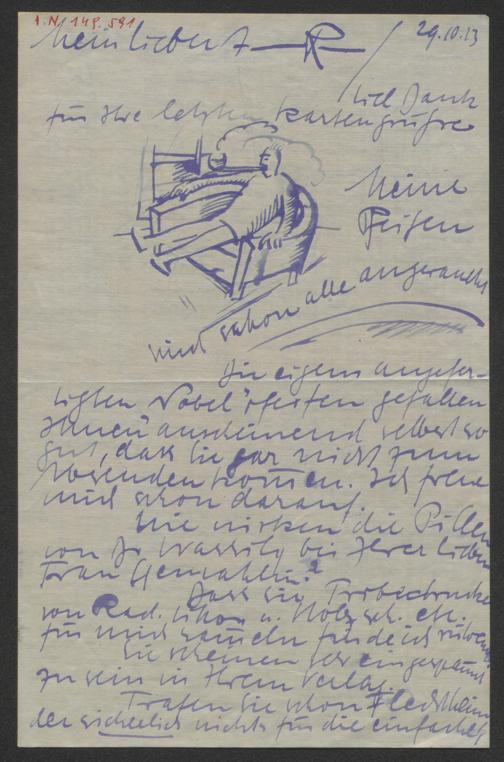 I.N. 149.591
29.10.13
Mein lieber R
Viel Dank
für Ihre letzten Kartengrüße
Meine
Pfeifen
sind schon alle angeraucht
Die eigens angefer-
tigten Nobel pfeifen gefallen
Ihnen anscheinend selbst so
gut, dass Sie gar nicht zum
Absenden kommen. Ich freue
mich schon darauf.
Wie wirken die Pillen
von Dr Wassily bei Ihrer lieben
Frau Gemahlin?
Dass Sie Probedrucke
von Rad. Lithon u. Holzsch. etc.
für mich sammeln finde ich rührend
Sie scheinen sehr eingespannt
zu sein in Ihrem Verlag.
Trafen Sie schon Flechtheim
der sicherlich nichts für die einfachen